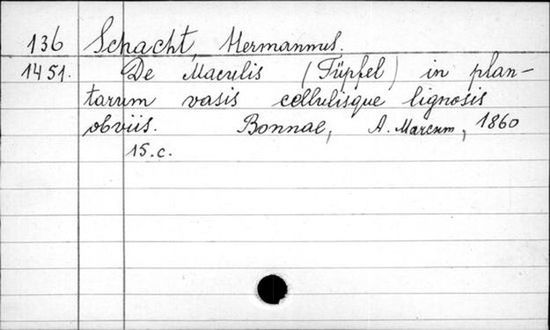 136 Schacht, Hermannus.
1451. De Maculis (Tüpfel) in plan-
tarum vasis cellulisque lignosis
obviis. Bonnae, A. Marcum, 1860
15.c.